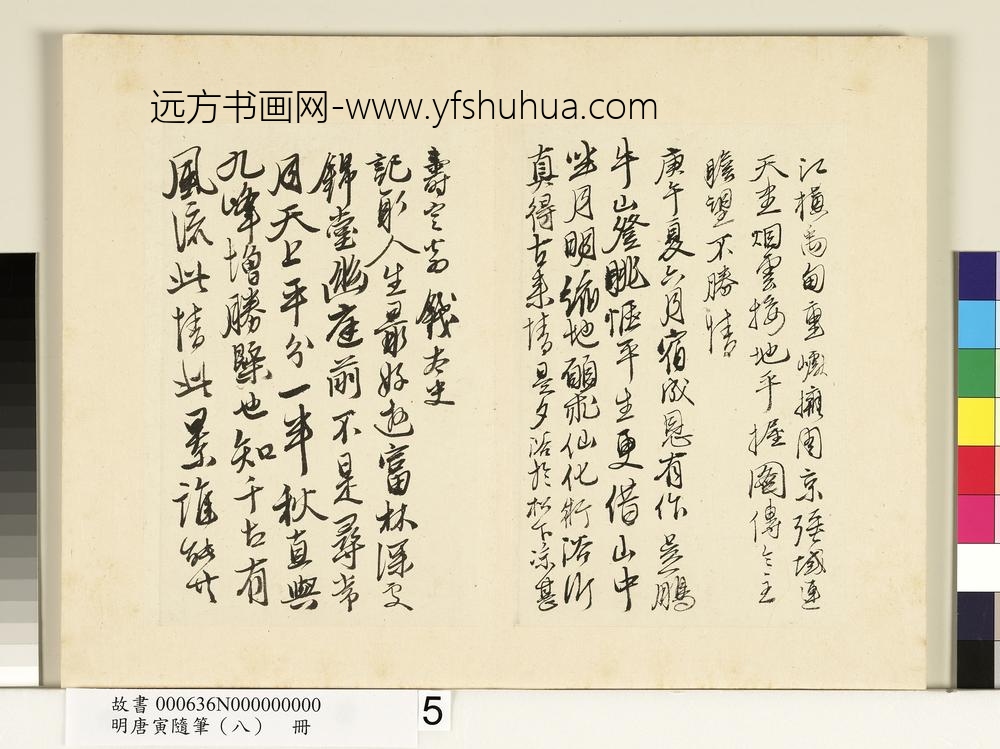 远方书画网-www.yfshuhua.com
江橫禹甸重 巘擁周京 疆域連
天畫烟雲接地平 握圖傳令主
瞻望不勝情
庚午夏六月宿承恩有作 吳鵬
牛山登眺愜平生更借山中
坐月明縮地願求仙化術浴沂
真得古來情 是夕浴於松下涼甚
壽定翁 錢太史
記取人生最好遊富林深更
錦堂幽庭前不是尋常
月天上平分一半秋直與
九峰增勝槩也知千古有
風流此情此景誰能共
故書 000636N000000000
明唐寅隨筆（八） 冊
5